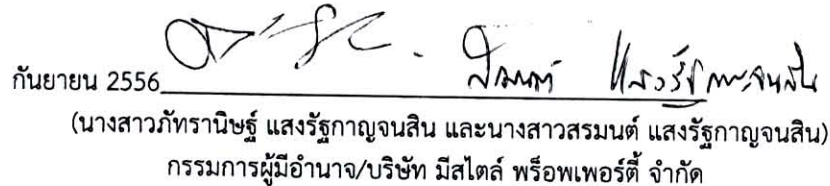 กันยายน 2556
(นางสาวภัทรานิษฐ์ แสงรัฐกาญจนสิน และนางสาวสรมนต์ แสงรัฐกาญจนสิน)
กรรมการผู้มีอำนาจ/บริษัท มีสไตล์ พร็อพเพอร์ตี้ จำกัด